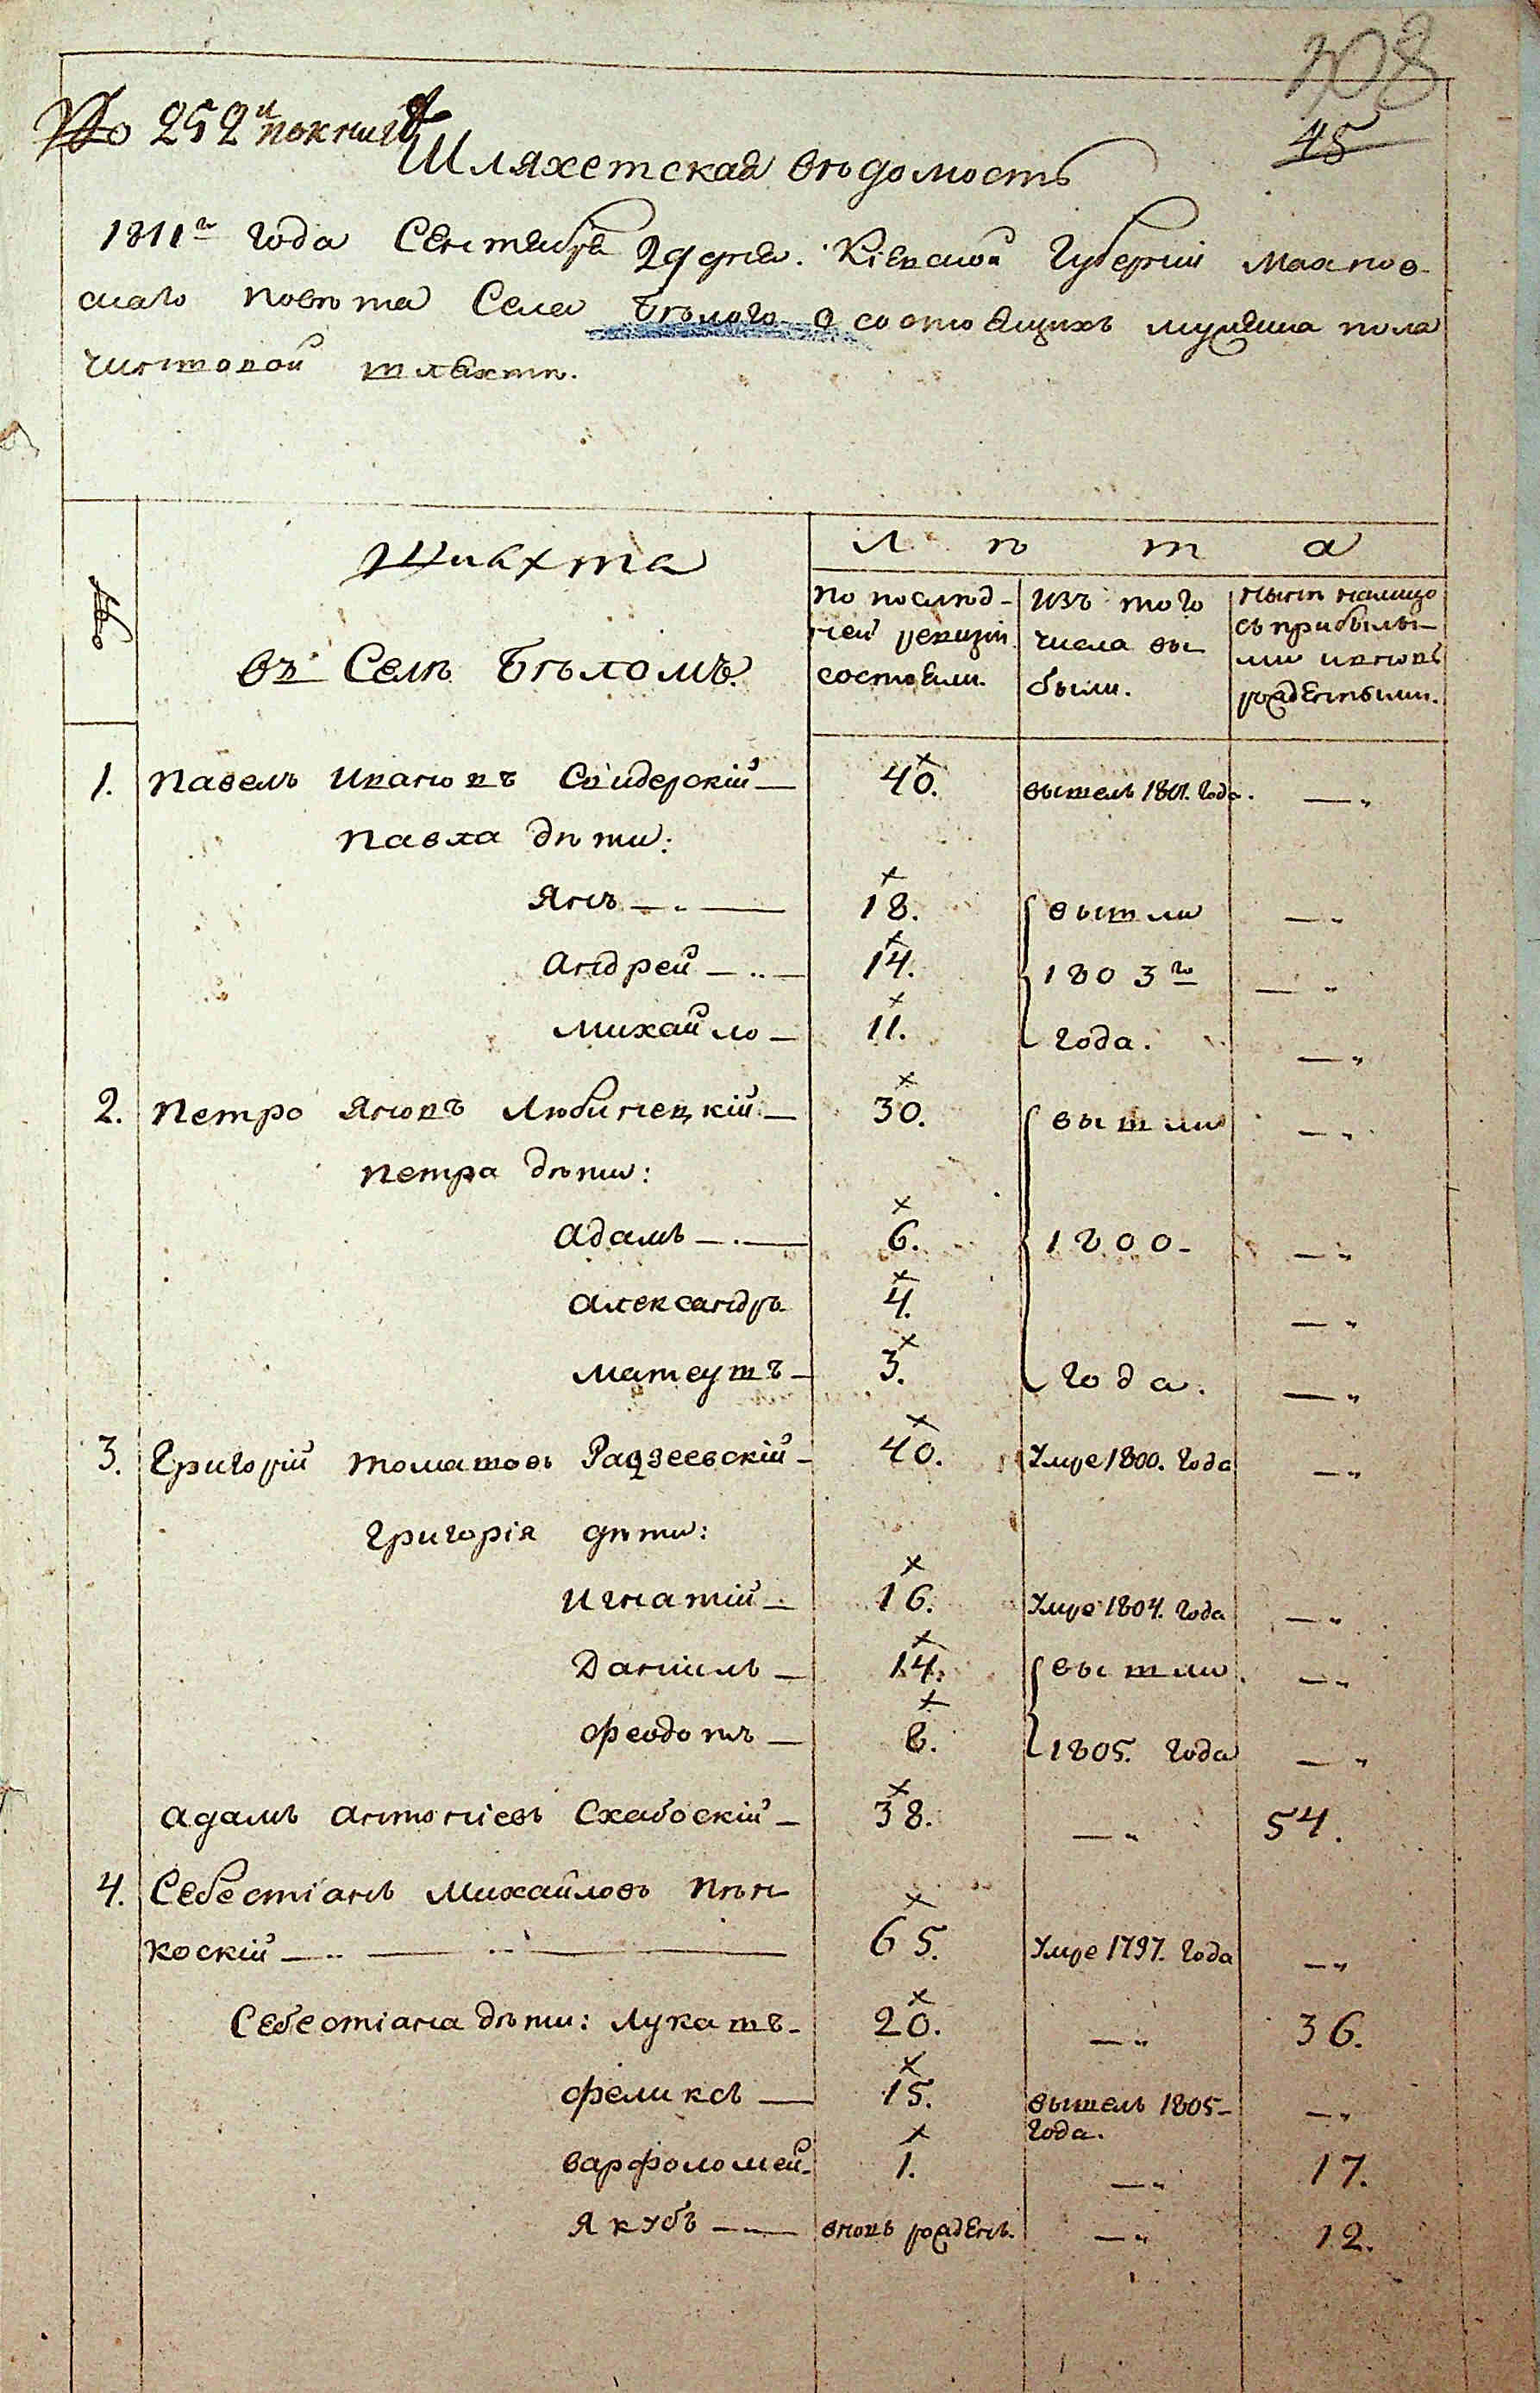 308
45
No 252й по книгѣ
Шляхетская вѣдомость
1811го года Сентября 29 дня. Кіевской Губерніи Махнов-
скаго повѣта Села Бѣлого о состоящихъ мужеска пола
чиншовой шляхти.
No
Шляхта
въ Селѣ Бѣломъ.
Л ѣ т а
по послѣд-
ней ревизіи
состояли.
изъ того
числа вы
были.
нынѣ налицо
съ прибылы-
ми и вновь
рожденными.
1. Павелъ Ивановъ Свидерскій — 40. вышелъ 1801. года. — „
Павла дѣти:
Янъ — 18. вышли — „
Андрей — 14. 1803го — „
Михайло — 11. года. — „
2. Петро Яновъ Любинецкій — 30. вышли — „
Петра дѣти:
Адамъ — 6. 1800- — „
Александръ 4. — „
Матеушъ — 3. года. — „
3. Григорій Томашовъ Радзеевскій — 40. Умре 1800. года — „
Григорія дѣти:
Игнатій — 16. Умре 1804. года — „
Даніилъ — 14. вышли — „
Феодотъ — 8. 1805. года — „
Адамъ Антоніевъ Схабоскій — 38. — „ 54.
4. Себестіанъ Михайловъ Пѣн-
коскій — 65. Умре 1797. года — „
Себестіана дѣти: Лукашъ — 20. — „ 36.
Феликсъ — 15. вышелъ 1805- — „
года.
Варфоломей — 1. — „ 17.
Якубъ — вновь рожденъ. — „ 12.